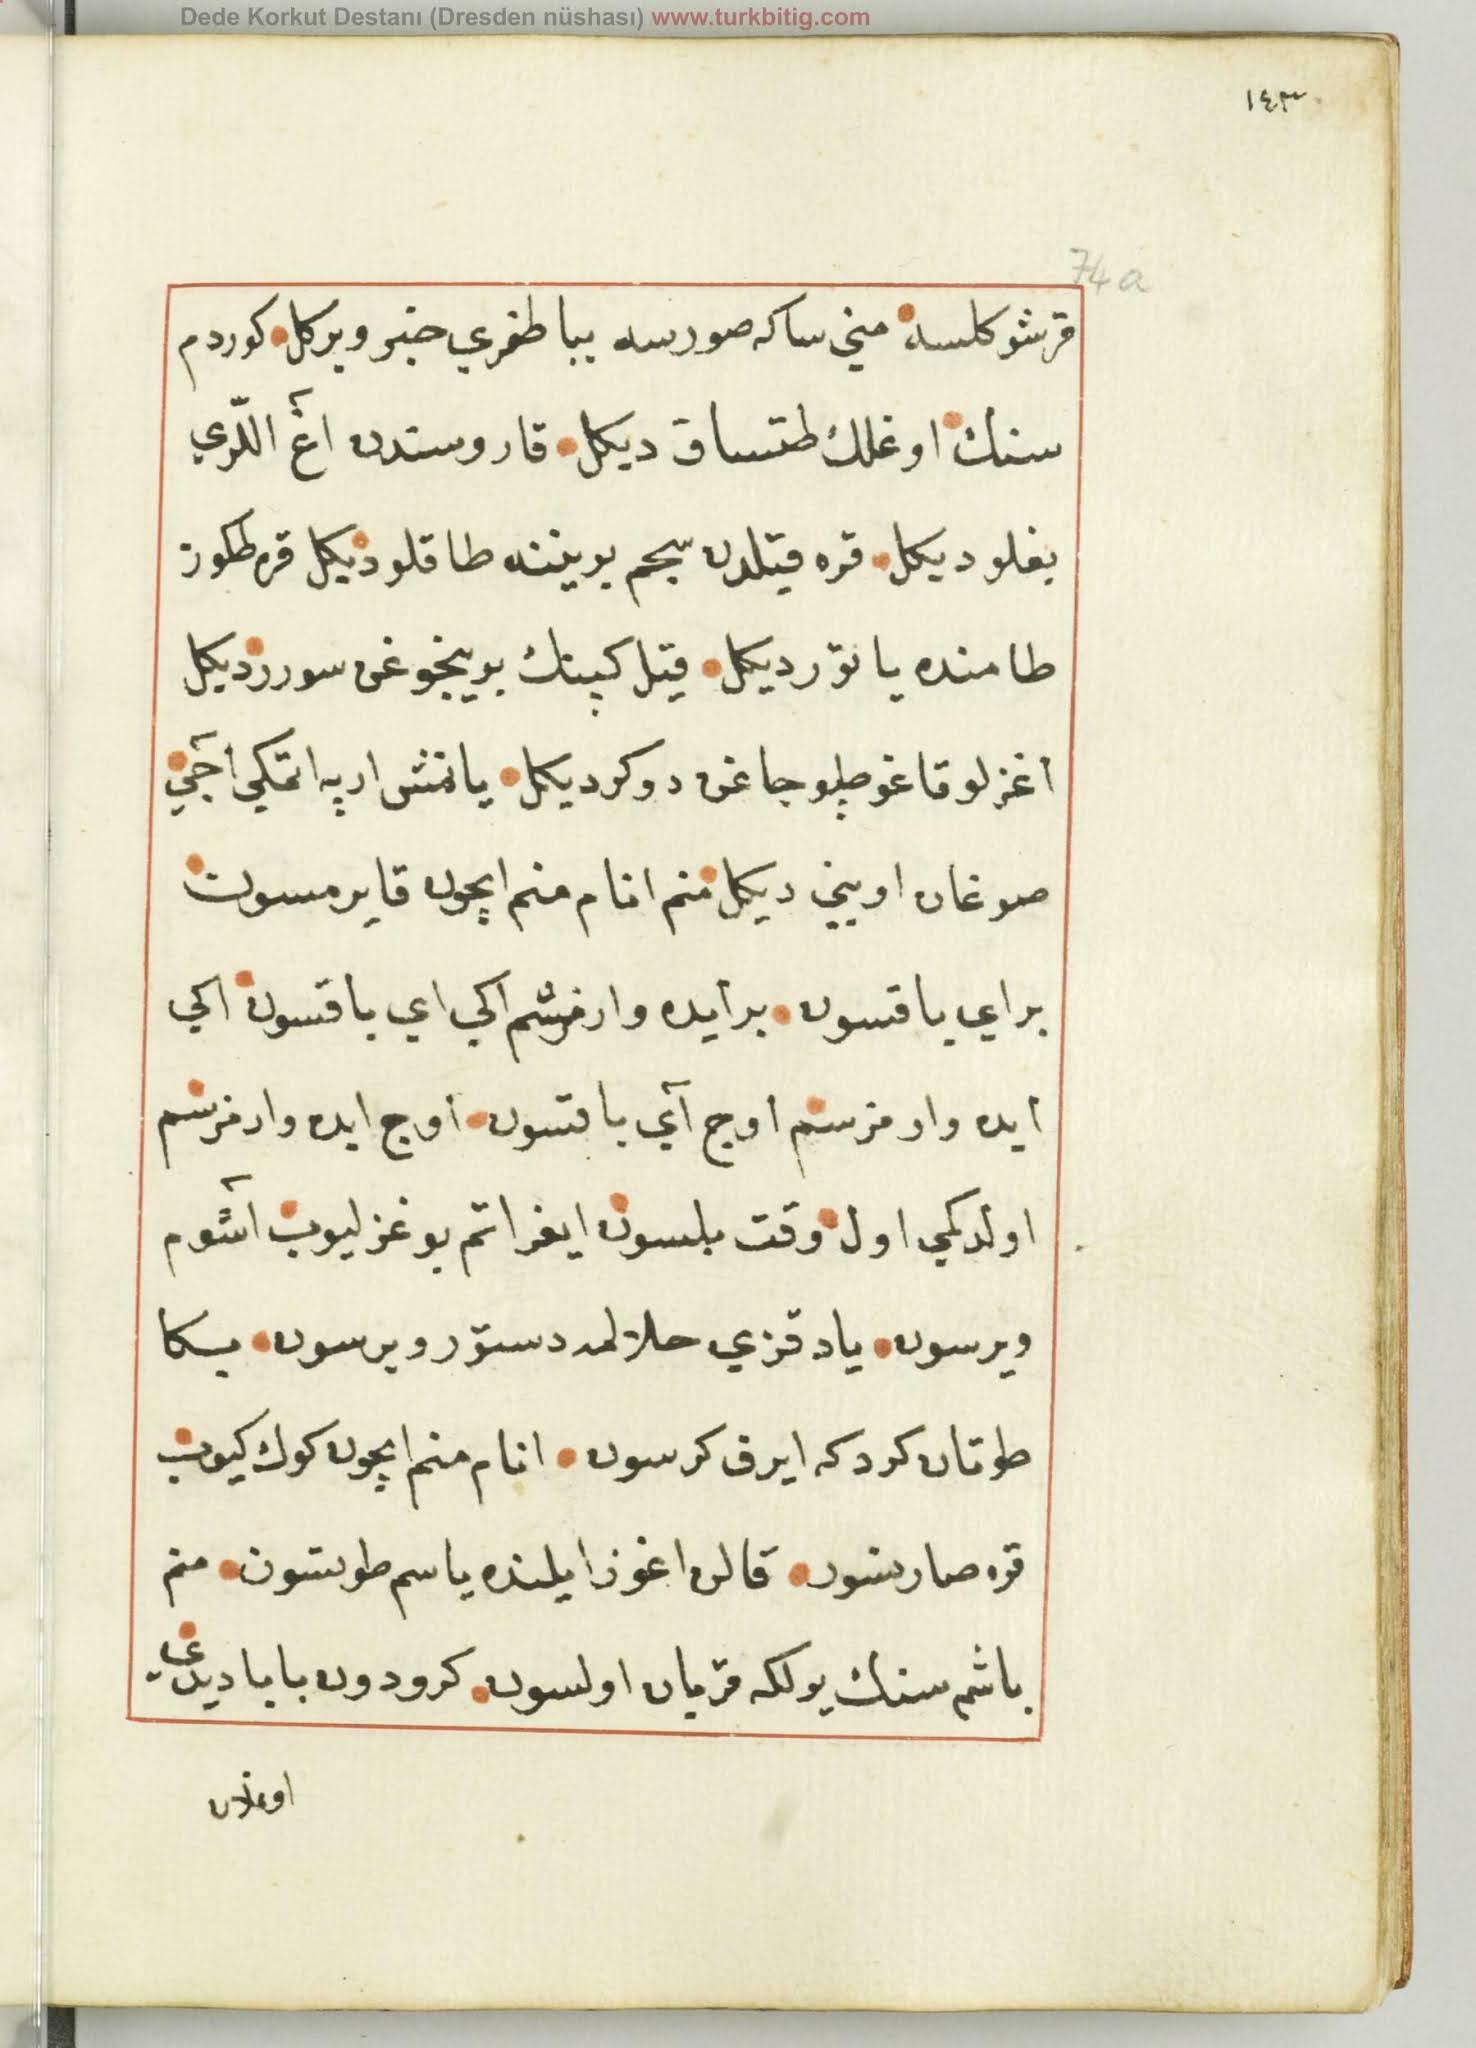 Dede Korkut Destanı (Dresden nüshası) www.turkbitig.com
١٤٣
74a
قرشو كلسه مني ساكه صورسه ببا طغري خبر ويركل كوردم
سنك اوغلك طتساق ديكل قاروسندن آغ اللّري
بغلو ديكل قره قيتلدن سجم بويننه طاقلو ديكل قره طكوز
طامنده ياتور ديكل قيتل كپنك بوينجوغن سورر ديكل
اغزلو قاغو طپوجاغن دوكر ديكل يانمش ارپه اتمكي آجي
صوغان اويني ديكل منم انام منم ايچون قايرمسون
بر اي باقسون بر ايده وارمزسم اكي اي باقسون اكي
ايده وارمزسم اوج آي باقسون اوج ايده وارمزسم
اولدكمي اول وقت بلسون ايغر اتم بوغزليوب آشوم
ويرسون ياد قزي حلالمه دستور ويرسون بسكا
طوتان كردكه ايرق كرسون انام منم ايچون كوك كيوب
قره صارنسون قالن اغوز ايلنده ياسم طوتسون منم
باشم سنك يولكه قربان اولسون كرودون بابا ديدي
اوغلان